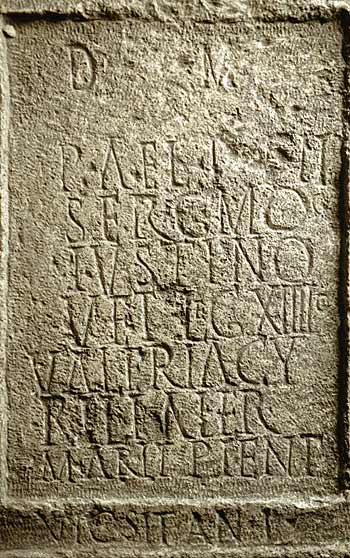 D M
P · AEL ·
SERG MOG
IVSTINO
VET LEG XIIII G
VALERIA CY
RILLA
MARIT PIENT
VICSIT AN L